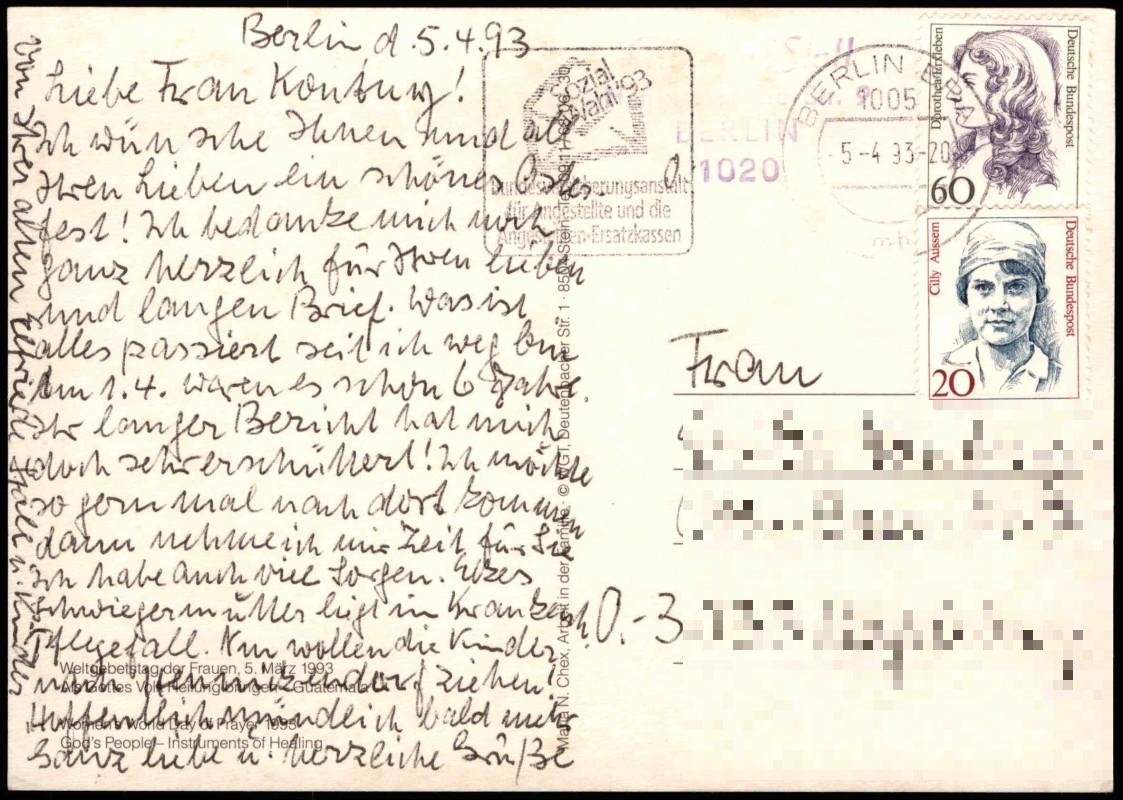 Berlin d. 5.4.93
Liebe Frau
Ich wünsche Ihnen und all
Ihren Lieben ein schönes
fest! Ich bedanke mich noch
ganz herzlich für Ihren lieben
und langen Brief. Was ist
alles passiert seit ich weg bin
Am 1.4. waren es schon 6 Jahre.
Ihr langer Bericht hat mich
doch sehr erschüttert! Ich möchte
so gern mal nach dort kommen
dann nehme ich mir Zeit für Sie
Ich habe auch viel Sorgen.
Schwiegermutter liegt im Krankenh.
Pflegefall. Nun wollen die Kinder
nach ziehen!
Hoffentlich mündlich bald mehr
Ganz liebe u. herzliche Grüße
von Ihrer alten u. Kinder
Weltgebetstag der Frauen, 5. März 1993
Als Gottes Volk Heilung bringen – Guatemala
Women's World Day of Prayer 1993
God's People – Instruments of Healing
Maria N. Chex, Arbeit in der © WGT, Deutenbacher Str. 1 · 8504 Stein
Sozial
Wahl '93
Bundesversicherungsanstalt
für Angestellte und die
Angestellten-Ersatzkassen
BERLIN
1020
BERLIN
1005
-5-4 93-20
mb
Dorothea Erxleben
Deutsche Bundespost
60
Cilly Aussem
Deutsche Bundespost
20
Frau
O.-3